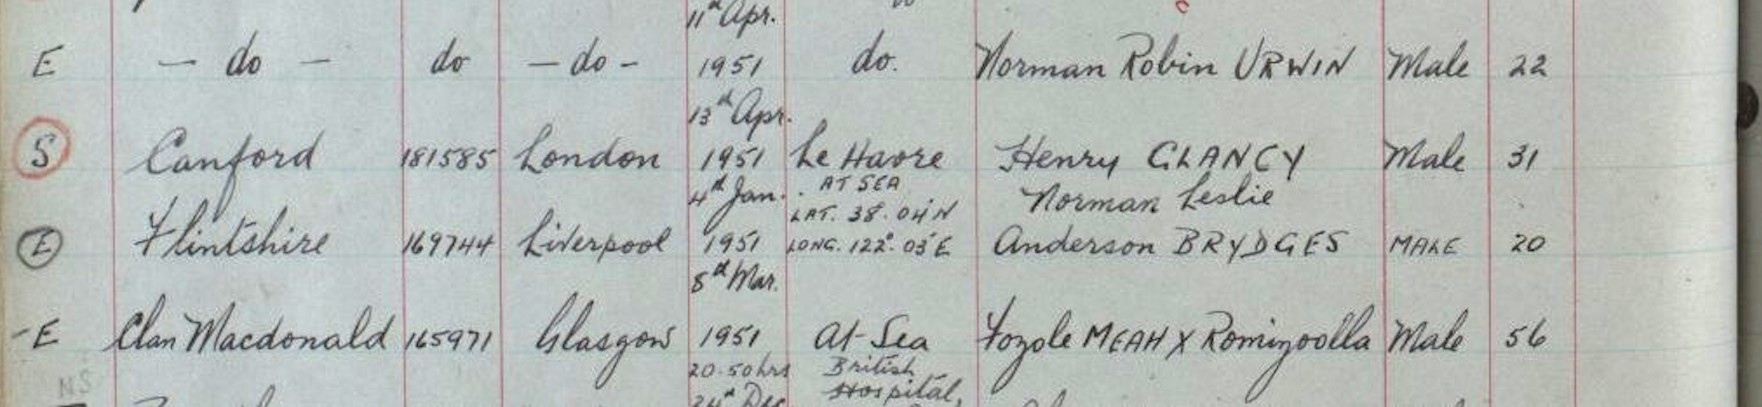 11th Apr.
E — do — do — do — 1951 do. Norman Robin URWIN Male 22
13th Apr.
S Canford 181585 London 1951 Le Havre Henry CLANCY Male 31
4th Jan. AT SEA Norman Leslie
LAT. 38°.04'N
E Flintshire 169744 Liverpool 1951 LONG. 122°.03'E Anderson BRYDGES MALE 20
8th Mar.
-E Clan Macdonald 165971 Glasgow 1951 At Sea Fozole MEAH X Romizoolla Male 56
20.50hrs British
NS 24th Dec Hospital,